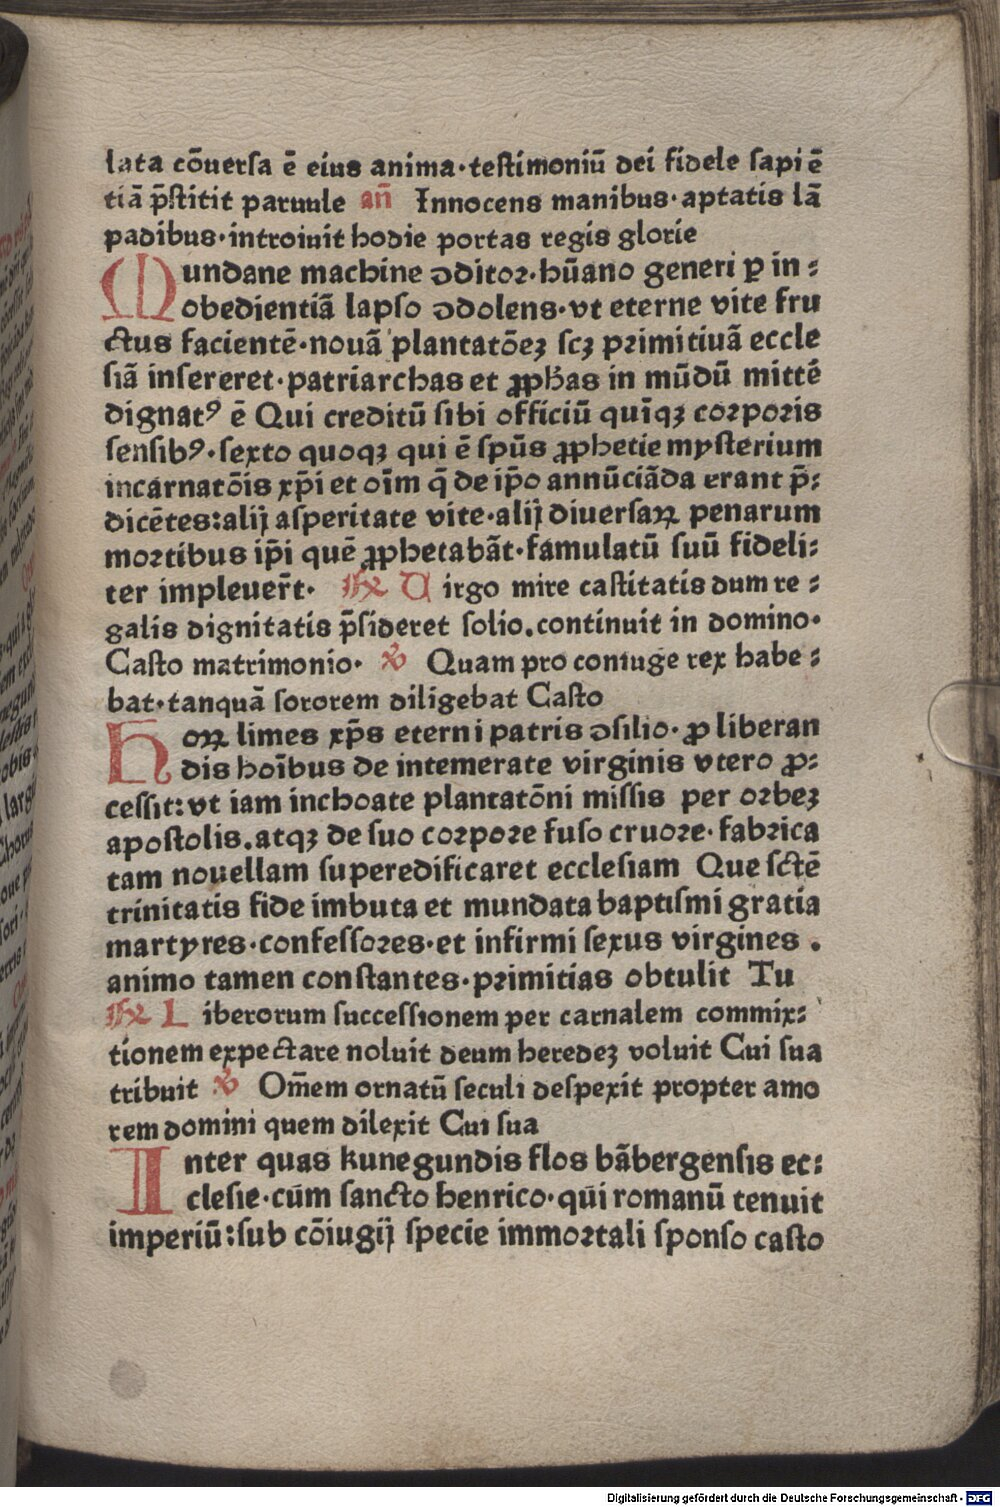 lata cōuerſa ē eius anima·teſtimoniū dei fidele ſapiē
tiā p̄ſtitit paruule an̄ Innocens manibus·aptatis lā
padibus·introiuit hodie portas regis glorie
Mundane machine ↄditoꝛ·hūano generi ꝑ in:
obedientiā lapſo ↄdolens·vt eterne vite fru
ctus facientē·nouā plantatōeꝫ ſcꝫ pꝛimitiuā eccle
ſiā inſereret·patriarchas et ꝓph̄as in mūdū mittē
dignatꝰ ē Qui creditū ſibi officiū quīqꝫ coꝛpoꝛis
ſenſibꝰ·ſexto quoqꝫ qui ē ſpūs ꝓphetie myſterium
incarnatōis xp̄i et oīm q̄ de ip̄o annūciāda erant p̄:
dicētes:alij aſperitate vite·alij diuerſaꝝ penarum
moꝛtibus ip̄i quē ꝓphetabāt·famulatū ſuū fideli:
ter impleuer̄t· ℟ Uirgo mire caſtitatis dum re:
galis dignitatis p̄ſideret ſolio.continuit in domino·
Caſto matrimonio· ℣ Quam pro coniuge rex habe:
bat·tanquā ſororem diligebat Caſto
Hoꝝ limes xp̄s eterni patris ↄſilio·ꝓ liberan
dis hoībus de intemerate virginis vtero ꝓ:
ceſſit:vt iam inchoate plantatōni miſſis per oꝛbeꝫ
apoſtolis.atqꝫ de ſuo coꝛpoꝛe fuſo cruoꝛe·fabꝛica
tam nouellam ſuperedificaret eccleſiam Que ſctē
trinitatis fide imbuta et mundata baptiſmi gratia
martyres·confeſſoꝛes·et infirmi ſexus virgines .
animo tamen conſtantes·pꝛimitias obtulit Tu
℟ Liberorum ſucceſſionem per carnalem commix:
tionem expectare noluit deum heredeꝫ voluit Cui ſua
tribuit ℣ Om̄em ornatū ſeculi deſpexit propter amo
rem domini quem dilexit Cui ſua
Inter quas kunegundis flos bābergenſis ec:
cleſie·cūm ſancto henrico·qūi romanū tenuit
imperiū:ſub cōiugij ſpecie immoꝛtali ſponſo caſto
Digitalisierung gefördert durch die Deutsche Forschungsgemeinschaft - DFG